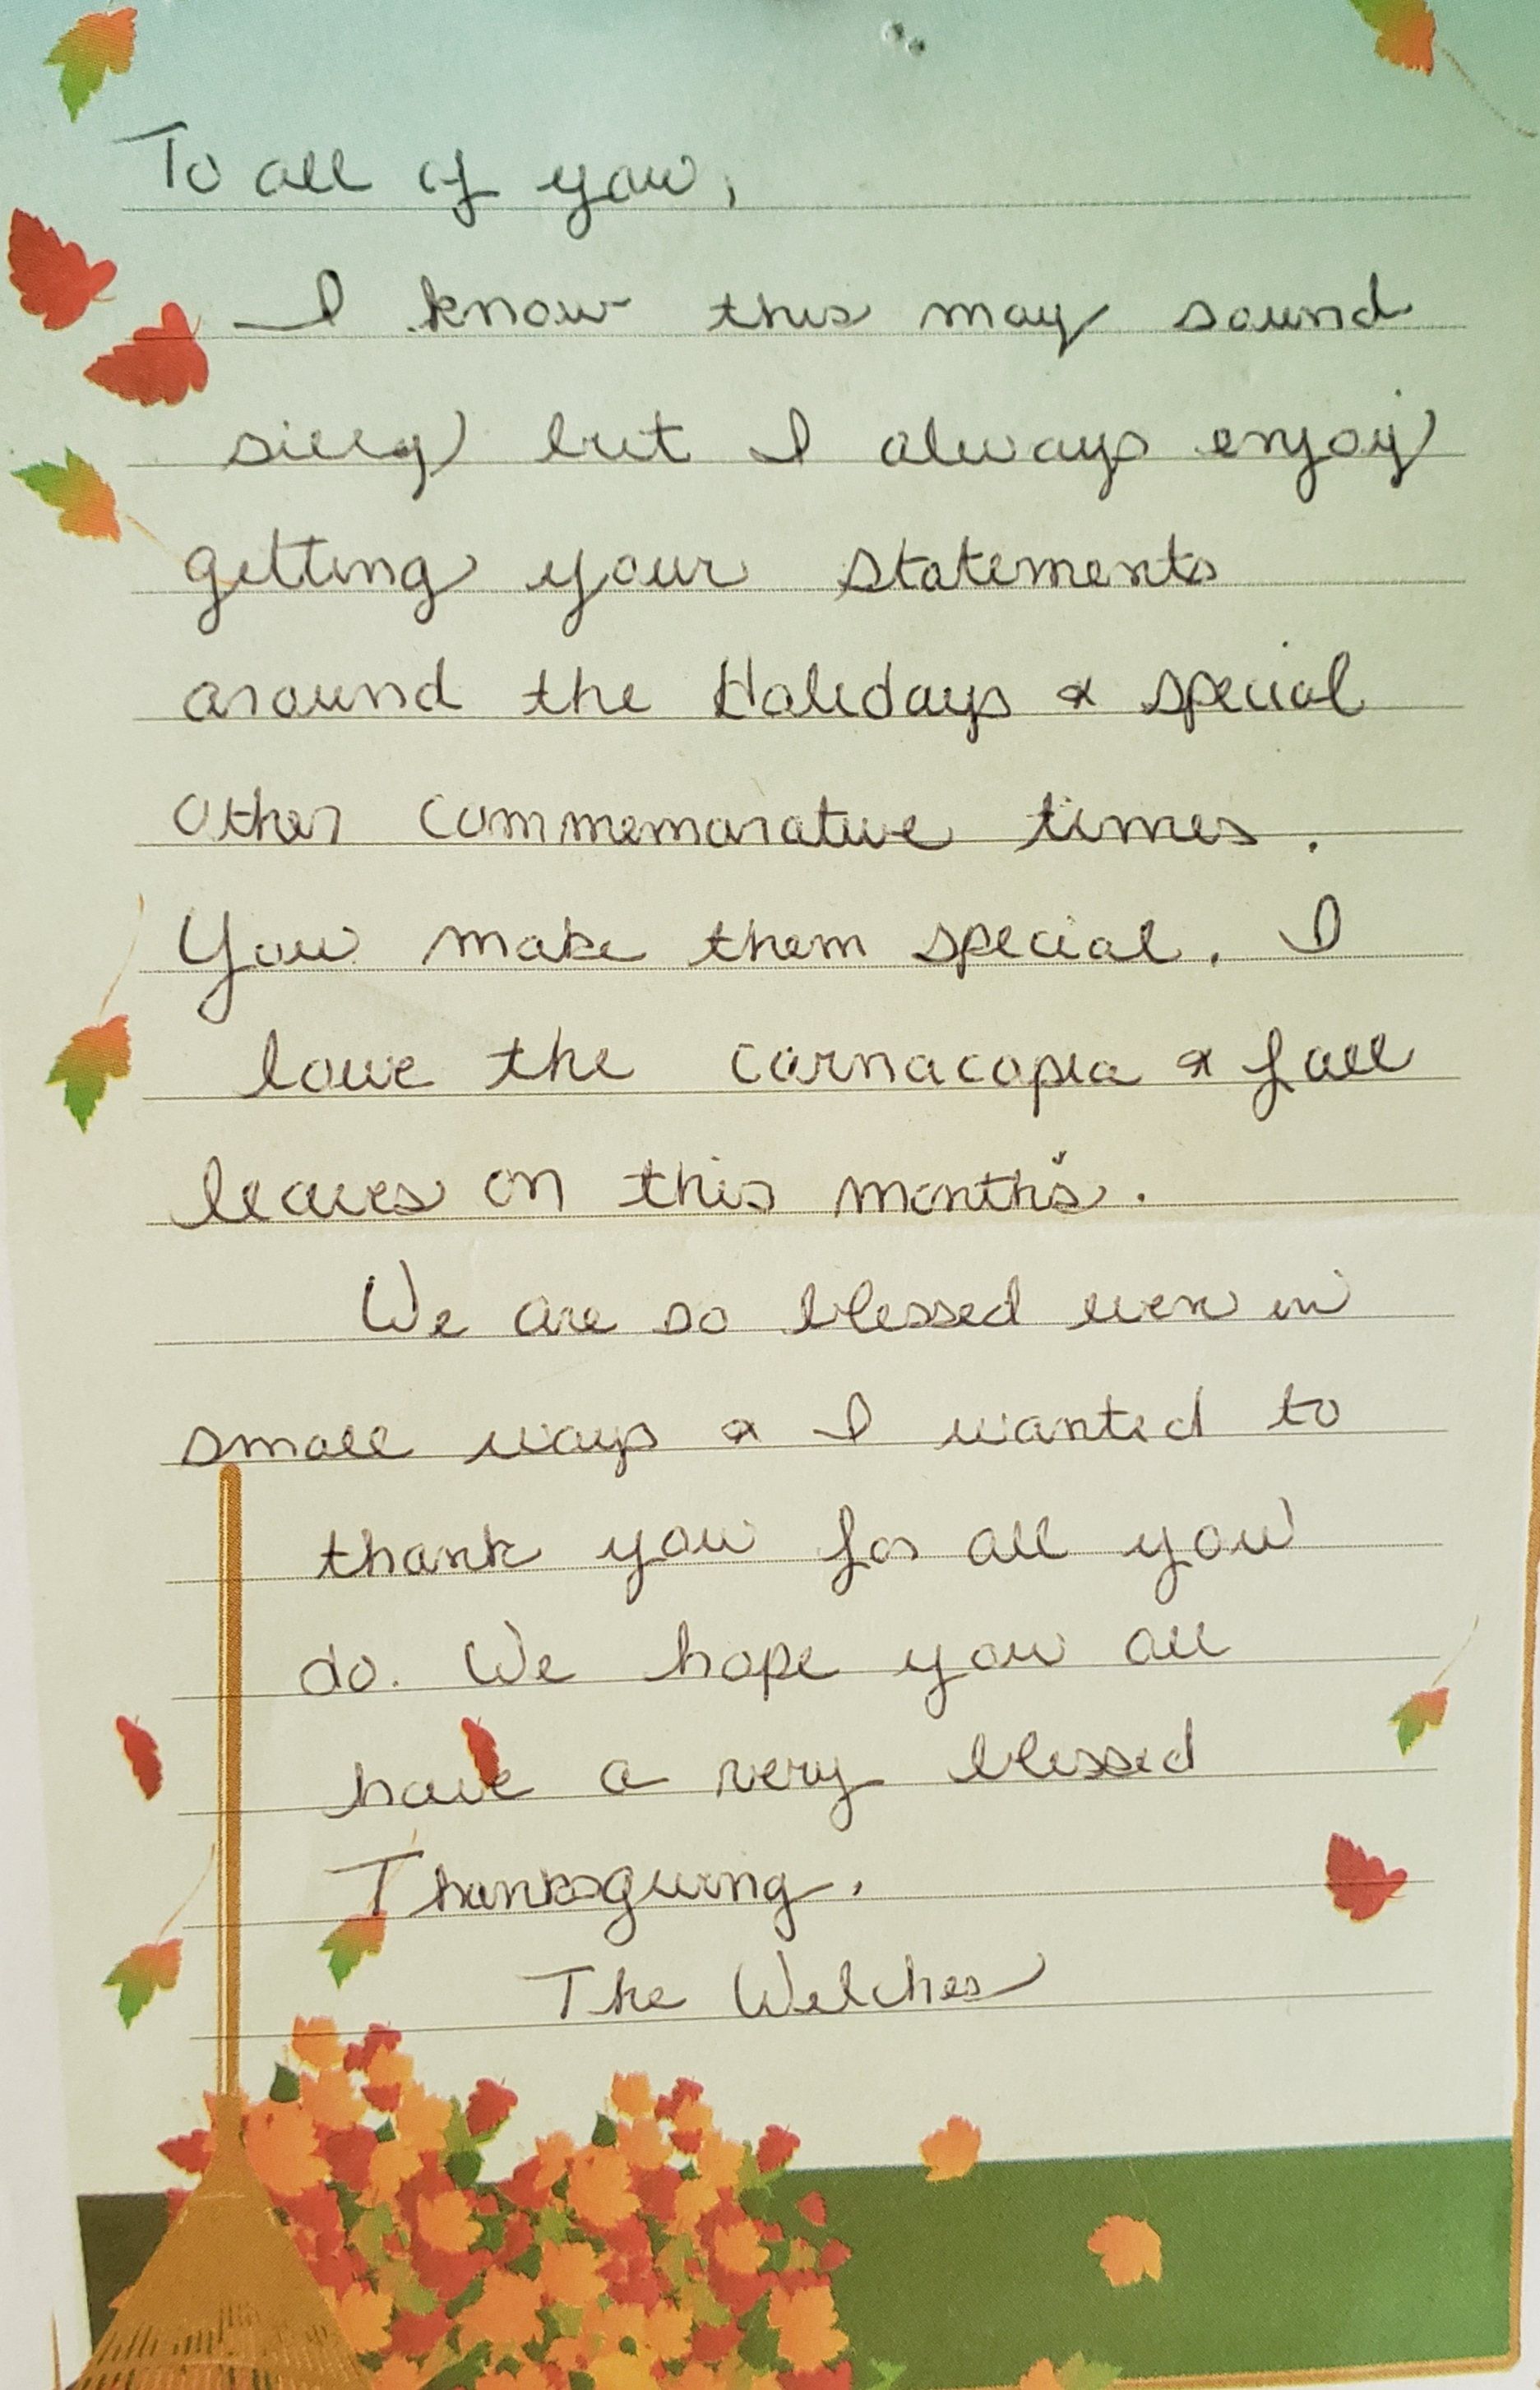 To all of you,
I know this may sound
silly but I always enjoy
getting your statements
around the Holidays & special
other commemorative times.
You make them special. I
love the cornacopia & fall
leaves on this month's.
We are so blessed even in
small ways & I wanted to
thank you for all you
do. We hope you all
have a very blessed
Thanksgiving.
The Welches